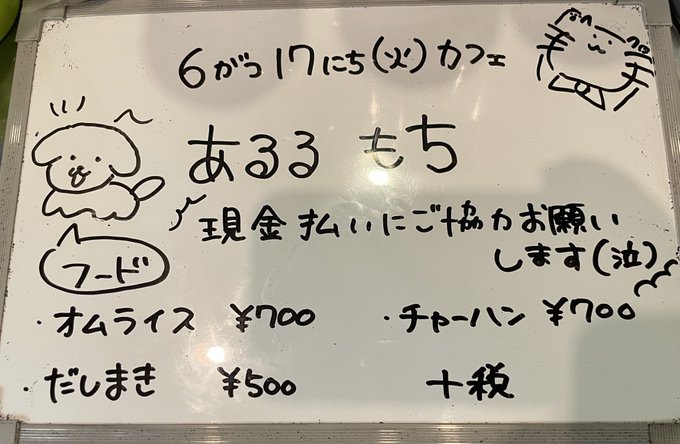 6がつ17にち(火)カフェ
あるる もち
現金払いにご協力お願い
します(泣)
フード
・オムライス ¥700
・チャーハン ¥700
・だしまき ¥500
+税